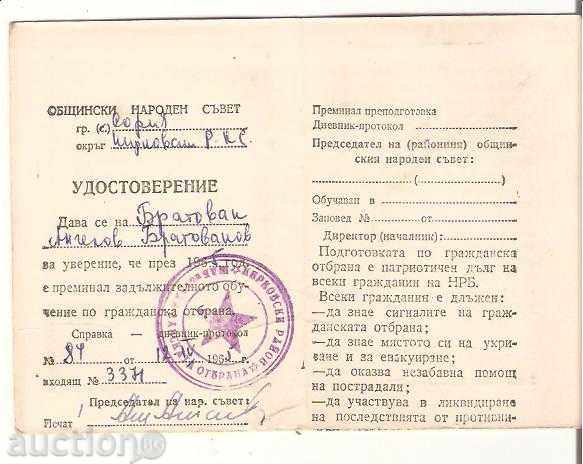 ОБЩИНСКИ НАРОДЕН СЪВЕТ
гр. (с.) София
окръг Кирковски Р.Н.С.
УДОСТОВЕРЕНИЕ
Дава се на Братован
Ангелов Братованов
в уверение, че през 195 год.
е преминал задължителното обу-
чение по гражданска отбрана.
Справка — дневник-протокол
№ 84 от 196 г.
входящ № 3371
Председател на нар. съвет:
Печат
КИРКОВСКИ РАЙОН
ОТБРАНА
Преминал преподготовка
Дневник-протокол
Председател на (районния) общин-
ския народен съвет:
( )
Обучаван в
Заповед № от
Директор (началник):
Подготовката по гражданска
отбрана е патриотичен дълг на
всеки гражданин на НРБ.
Всеки гражданин е длъжен:
—да знае сигналите на граж-
данската отбрана;
—да знае мястото си на укри-
ване и за евакуиране;
—да оказва незабавна помощ
на пострадали;
—да участвува в ликвидиране
на последствията от противни-
auction